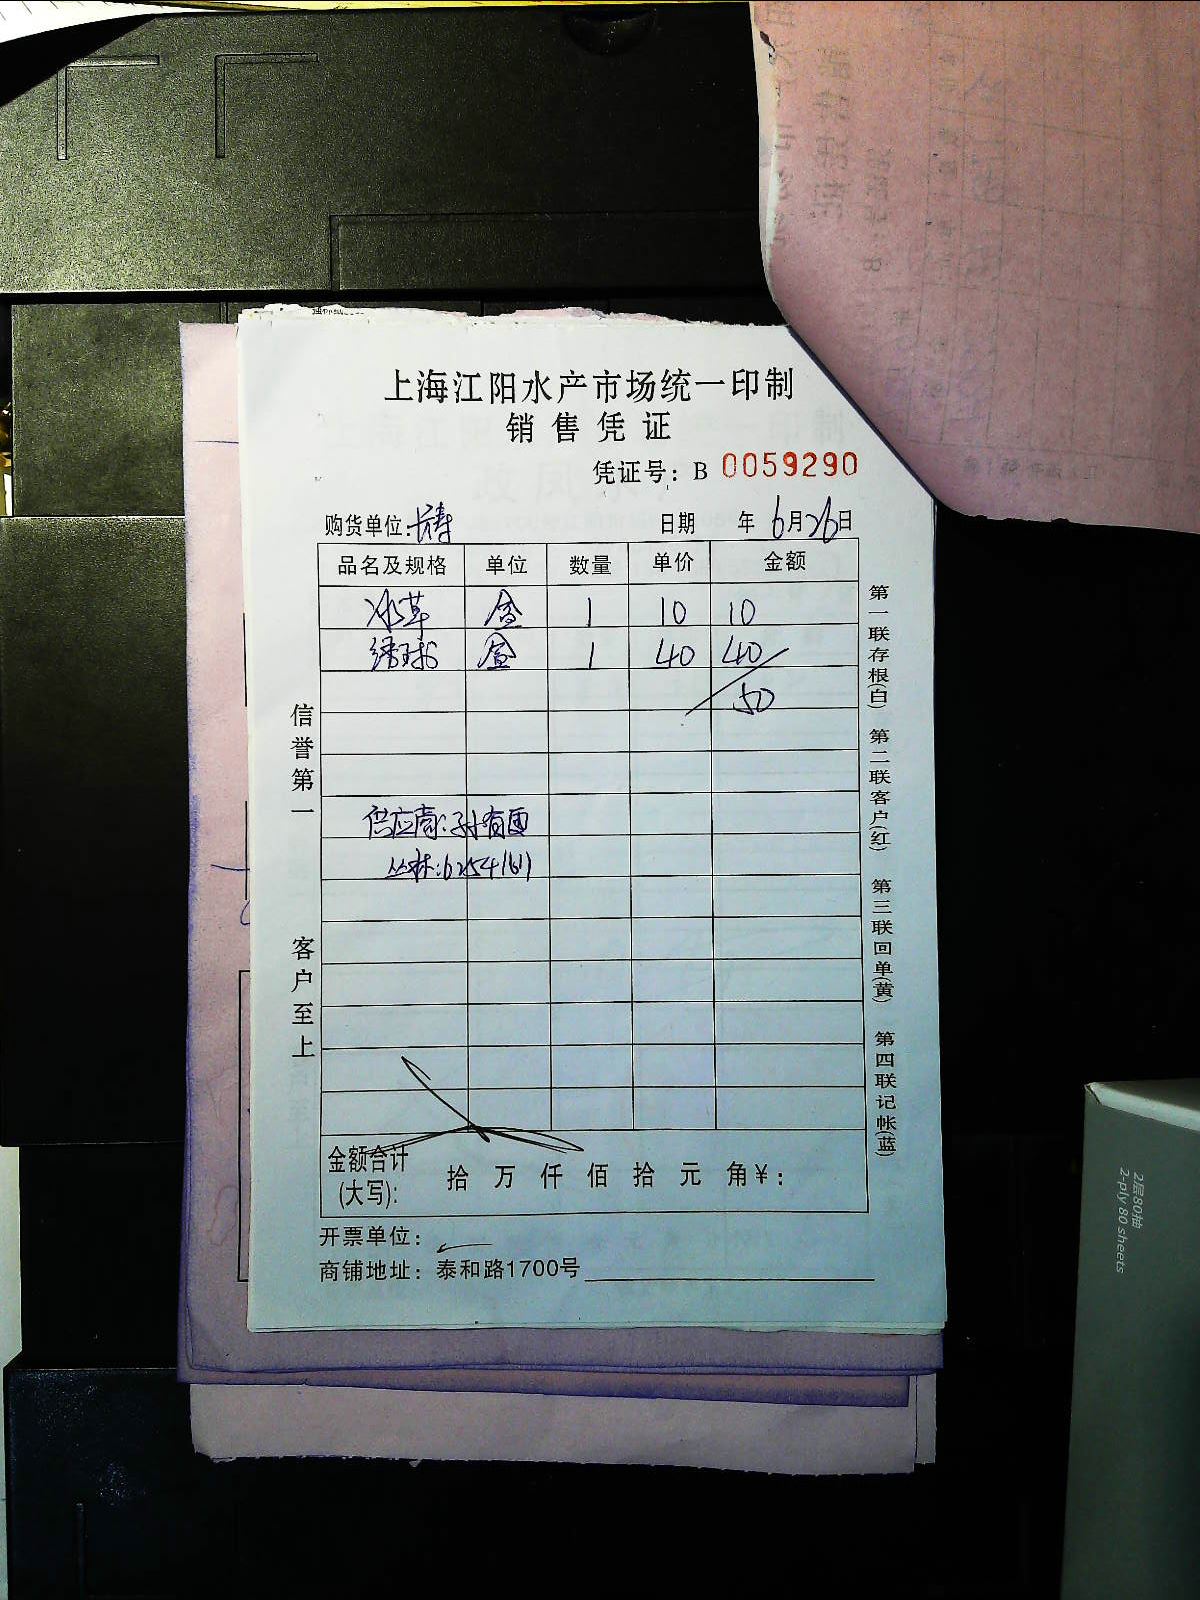 上海江阳水产市场统一印制
销售凭证
凭证号: B 0059290
购货单位: 日期 年 6月26日
品名及规格 单位 数量 单价 金额
冰草 盒 1 10 10
绣球 盒 1 40 40
50
供应商:孙有国
丛林:62541611
金额合计
(大写): 拾 万 仟 佰 拾 元 角¥:
开票单位:
商铺地址: 泰和路1700号
信誉第一
客户至上
第一联存根(白)
第二联客户(红)
第三联回单(黄)
第四联记帐(蓝)
2层80抽
2-ply 80 sheets